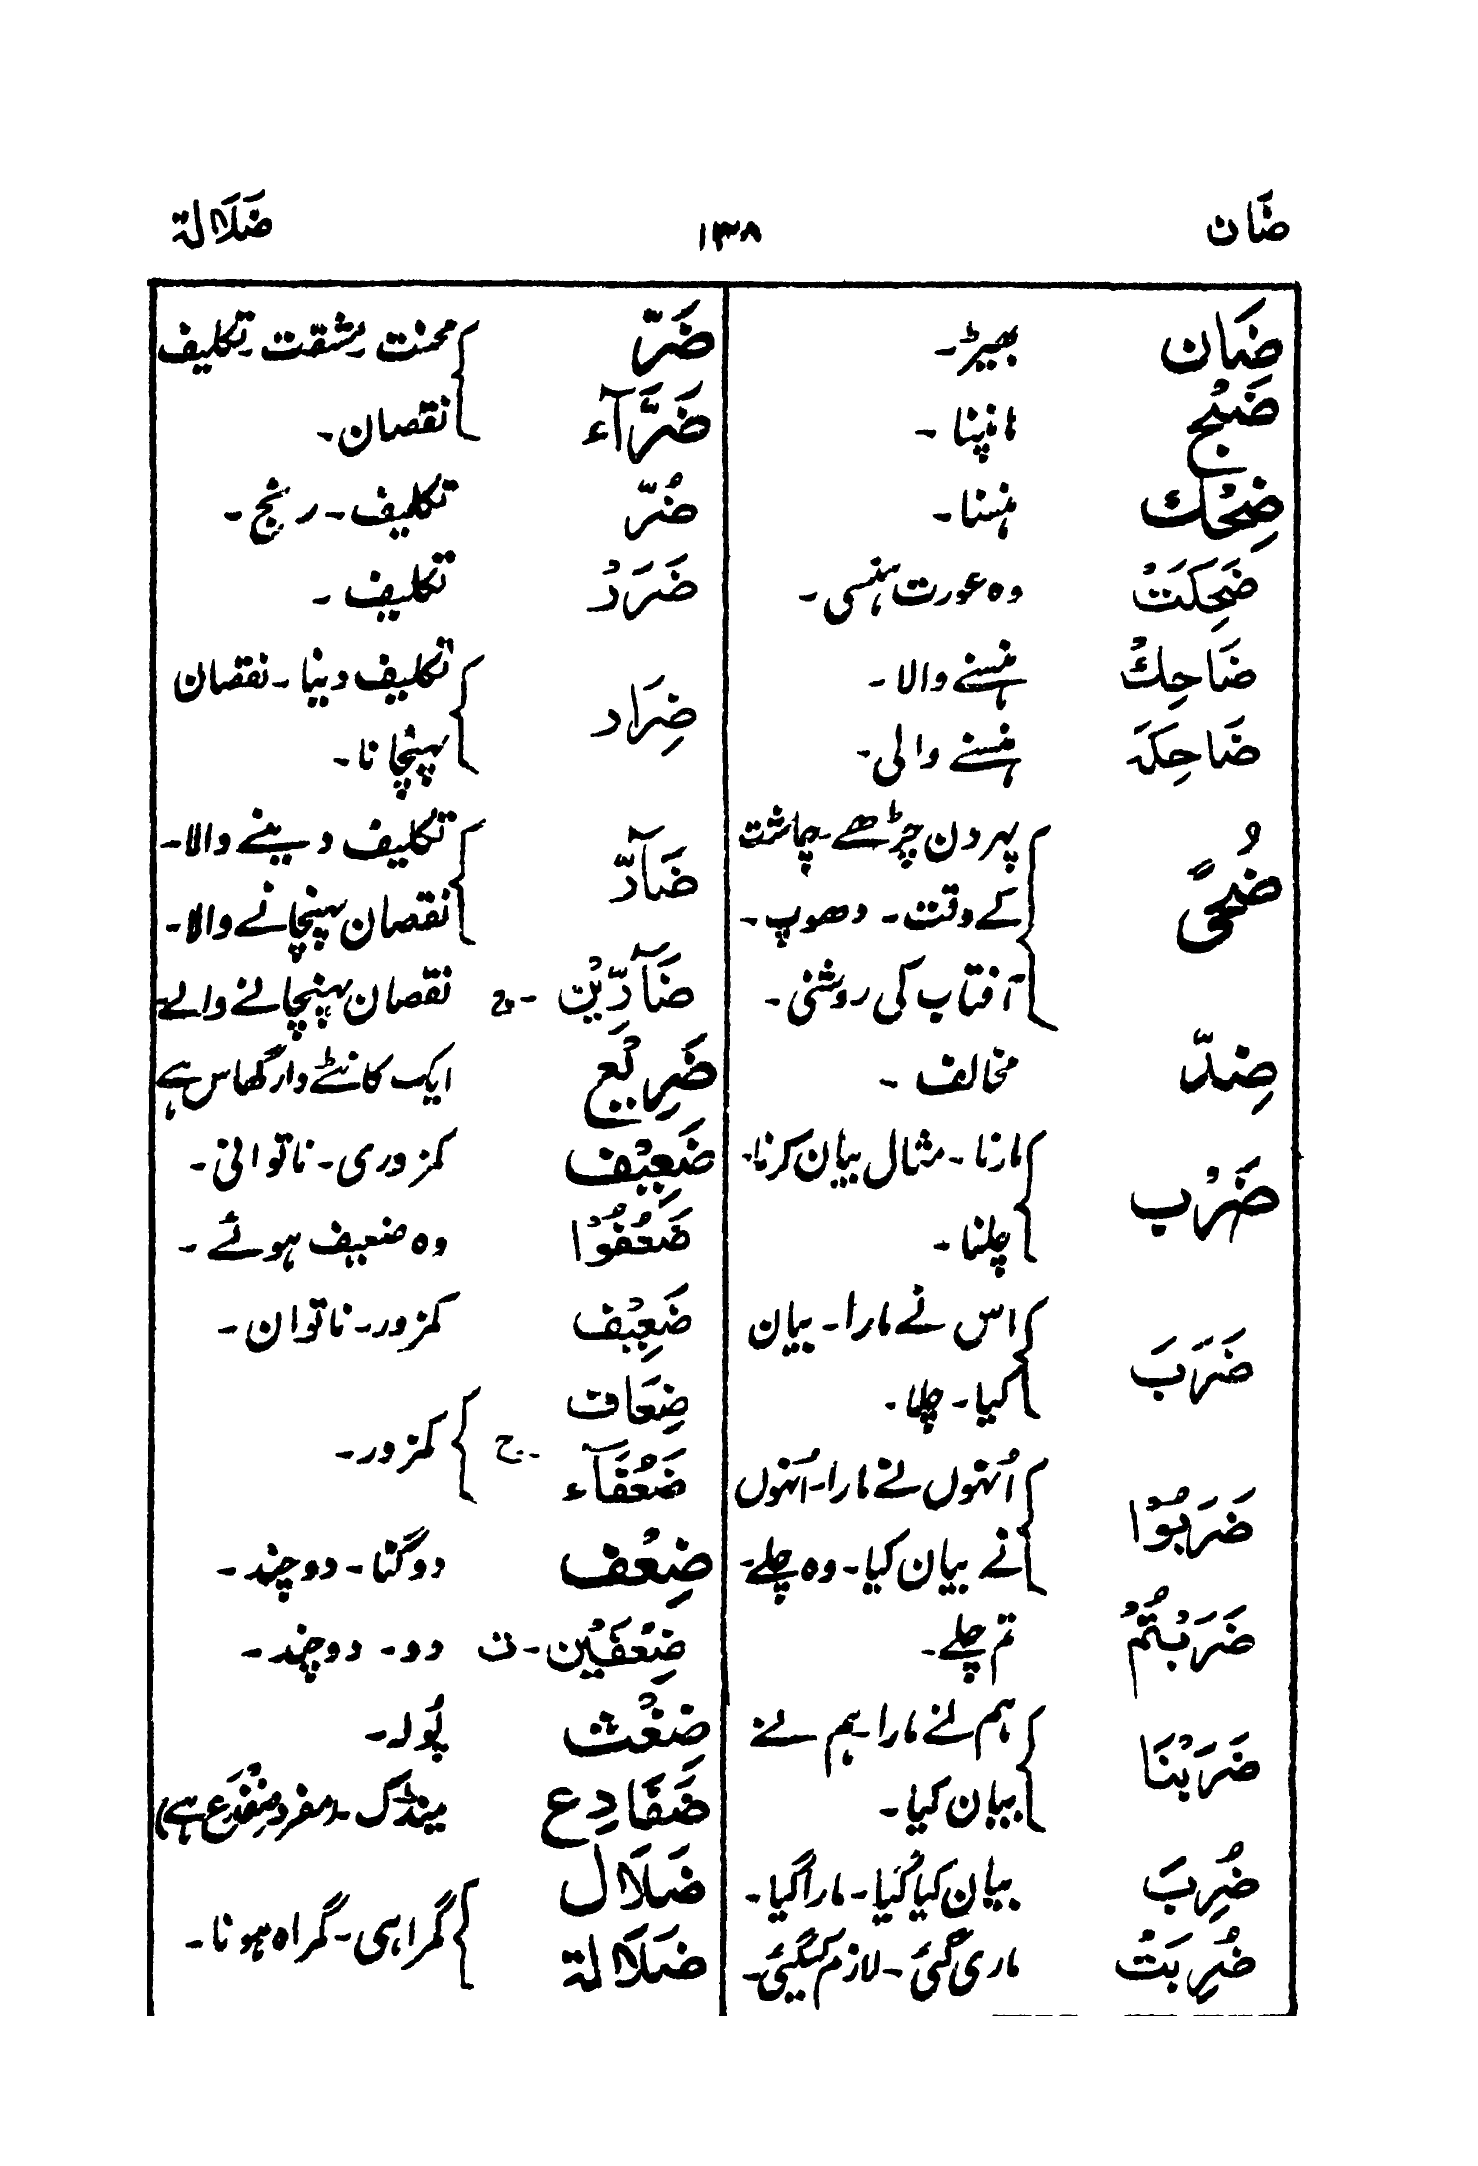 ضَان ۱۳۸ ضَلَالة
ضَان بھیڑ۔
ضَبْح ہانپنا۔
ضِحْك ہنسنا۔
ضَحِكَتْ وہ عورت ہنسی۔
ضَاحِكٌ ہنسنے والا۔
ضَاحِكَہ ہنسنے والی۔
ضُحًی پہر دن چڑھے۔ چاشت
کے وقت۔ دھوپ۔
آفتاب کی روشنی۔
ضِدّ مخالف۔
ضَرْب مارنا۔ مثال بیان کرنا۔
چلنا۔
ضَرَبَ اس نے مارا۔ بیان
کیا۔ چلا۔
ضَرَبُوْا اُنہوں نے مارا۔ اُنہوں
نے بیان کیا۔ وہ چلے۔
ضَرَبْتُمْ تم چلے۔
ضَرَبْنَا ہم نے مارا ہم نے
بیان کیا۔
ضُرِبَ بیان کیا گیا۔ مارا گیا۔
ضُرِبَتْ ماری گئی۔ لازم کی گئی۔
ضَرّ محنت۔ مشقت۔ تکلیف
ضَرَّآء نقصان۔
ضُرّ تکلیف۔ رنج۔
ضَرَرْ تکلیف۔
ضِرَار تکلیف دینا۔ نقصان
پہنچانا۔
ضَآرّ تکلیف دینے والا۔
نقصان پہنچانے والا۔
ضَآرِّیْن۔ ج نقصان پہنچانے والے
ضَرِیْع ایک کانٹے دار گھاس ہے
ضَعِیْف کمزوری۔ ناتوانی۔
ضَعُفُوْا وہ ضعیف ہوئے۔
ضَعِیْف کمزور۔ ناتوان۔
ضِعَاف
ضُعَفَآء ۔ج کمزور۔
ضِعْف دوگنا۔ دوچند۔
ضِعْفَیْن۔ ت دو۔ دوچند۔
ضِغْث پُولہ۔
ضَفَادِع مینڈک۔ (مفرد ضِفْدَع ہے)
ضَلَال
ضَلَالة گمراہی۔ گمراہ ہونا۔